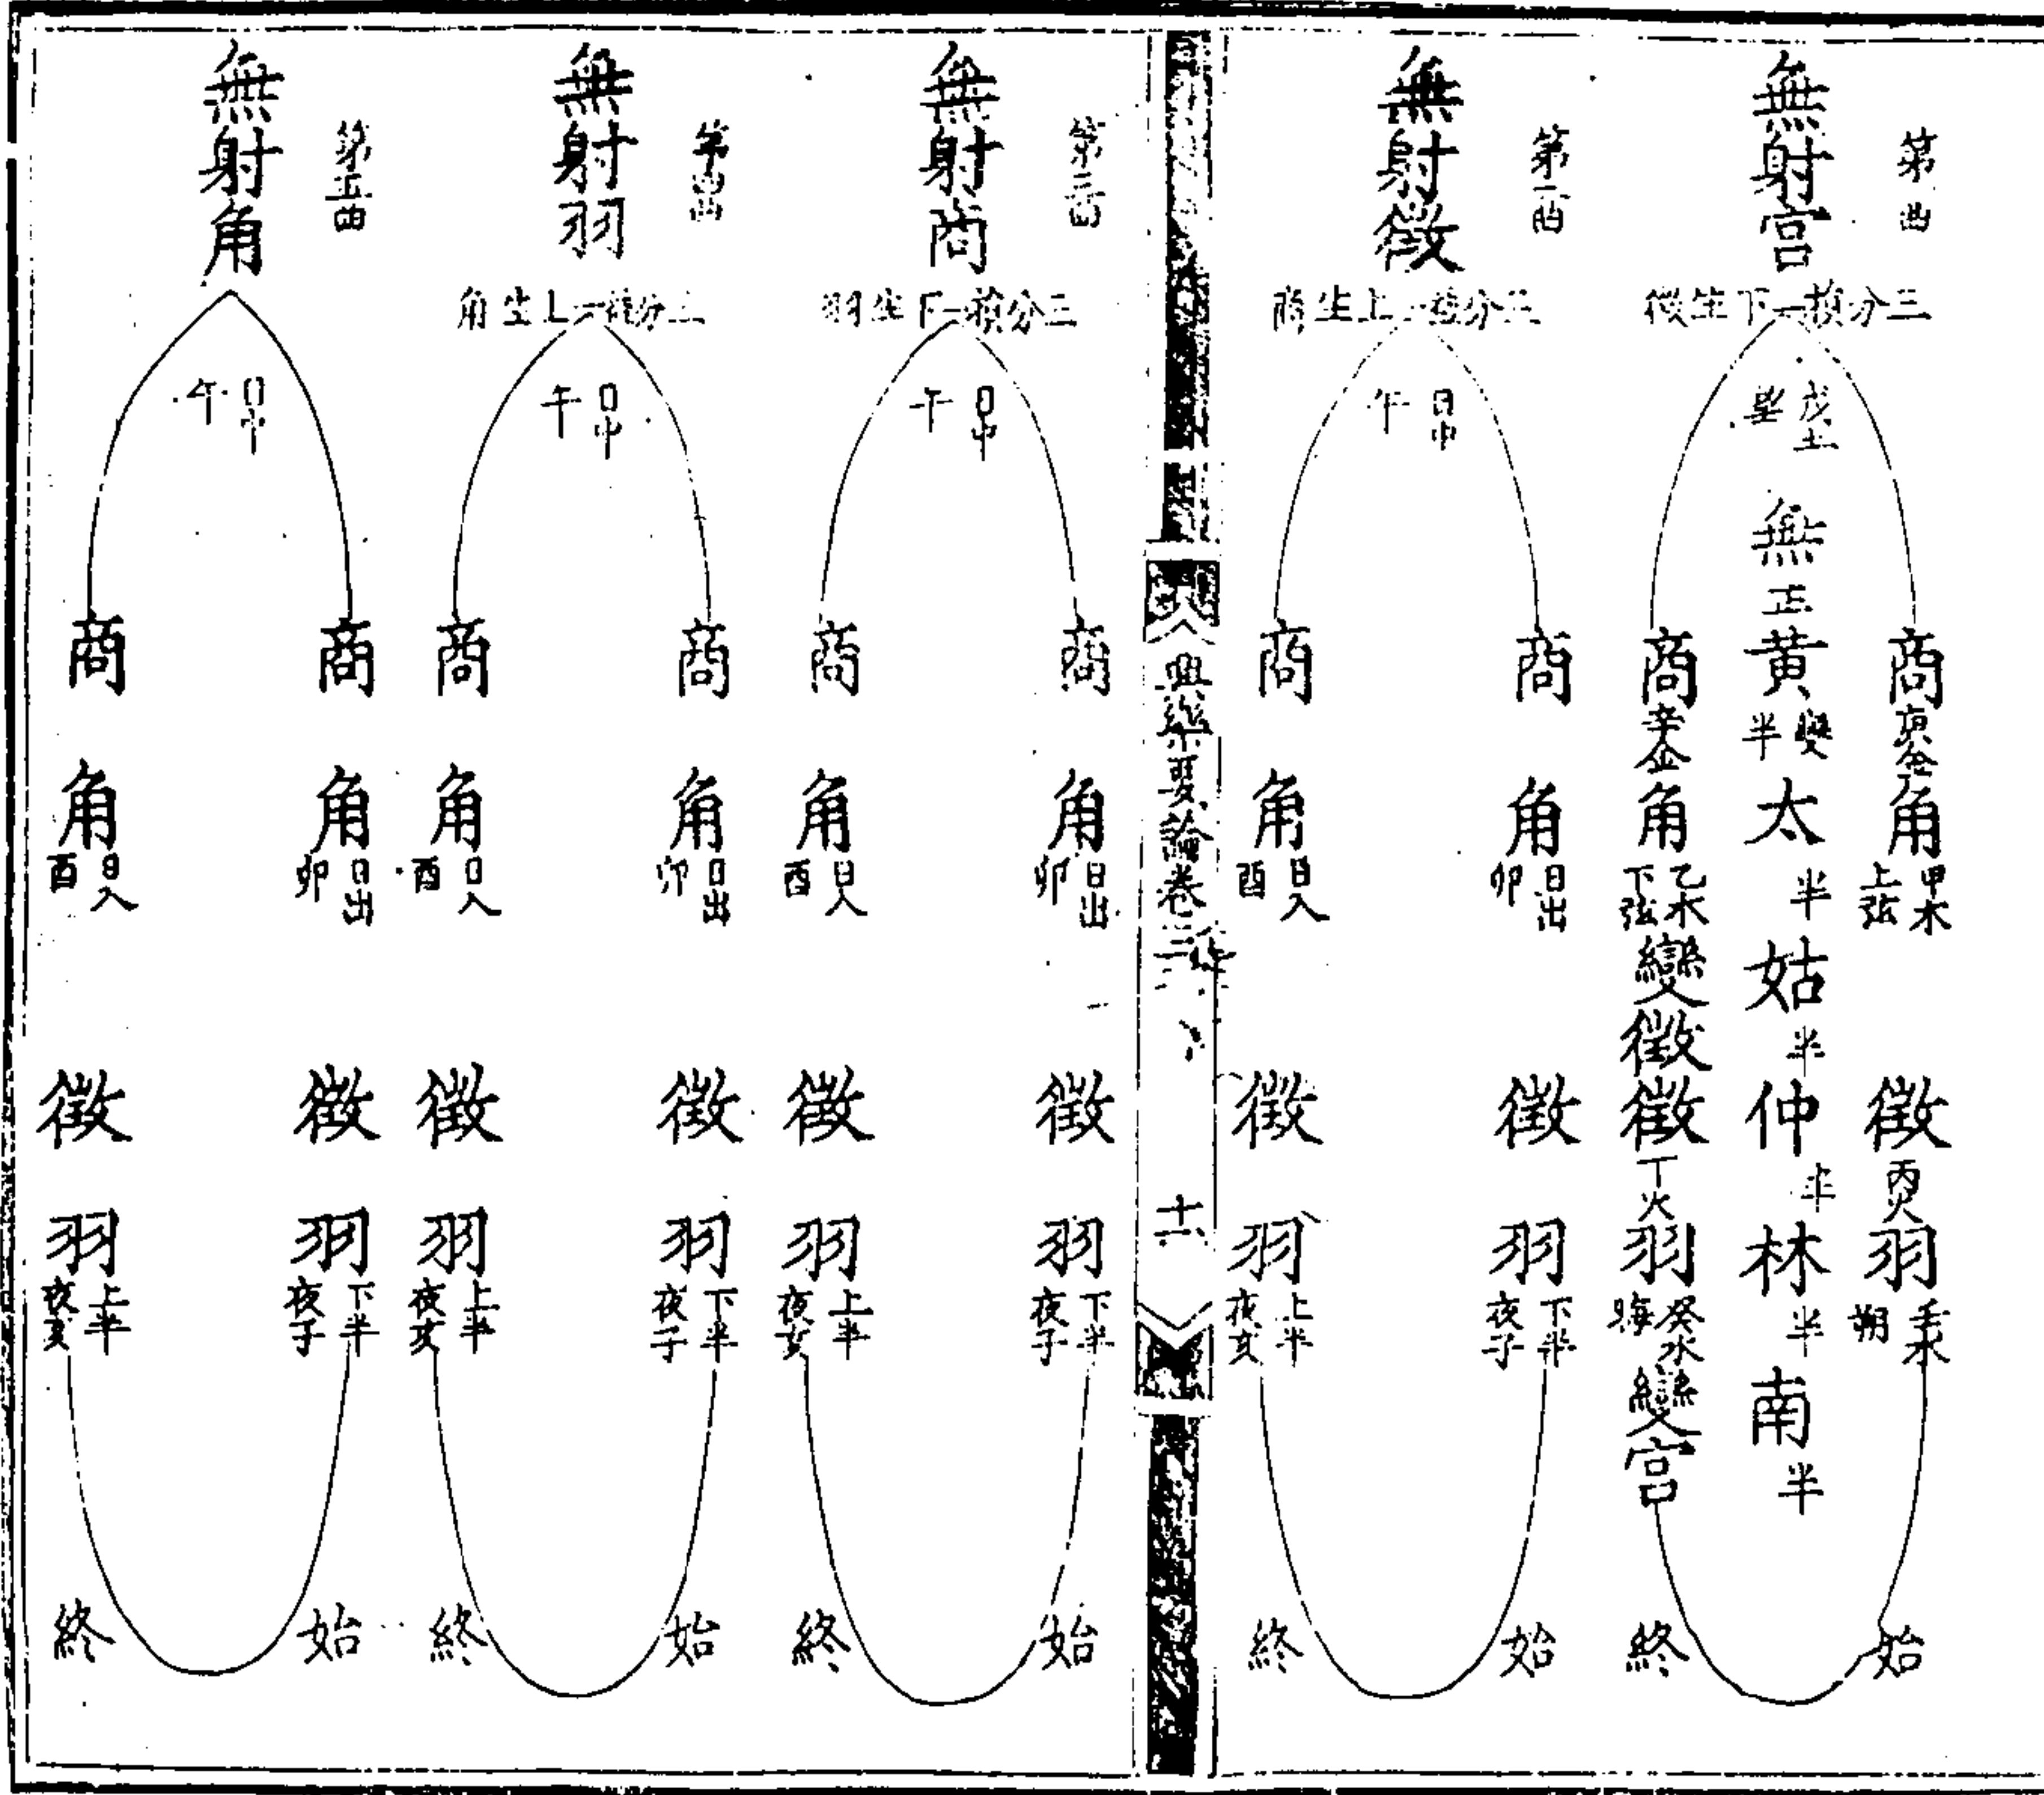 第一曲
無射宮
三分損一下生徵
戊土
望
商庚金角甲木上弦
徵丙火羽壬水朔
始
無正黃變半太半姑半仲半林半南半
商辛金角乙木下弦變徵徵丁火羽癸水晦變宮
終
第二曲
無射徵
三分益一上生商
日中
午
商角日出卯
徵羽下半夜子
始
商角日入酉
徵羽上半夜亥
終
興樂要論卷三
十六
第三曲
無射商
三分損一下生羽
日中
午
商角日出卯
徵羽下半夜子
始
商角日入酉
徵羽上半夜亥
終
第四曲
無射羽
三分益一上生角
日中
午
商角日出卯
徵羽下半夜子
始
商角日入酉
徵羽上半夜亥
終
第五曲
無射角
日中
午
商角日出卯
徵羽下半夜子
始
商角日入酉
徵羽上半夜亥
終